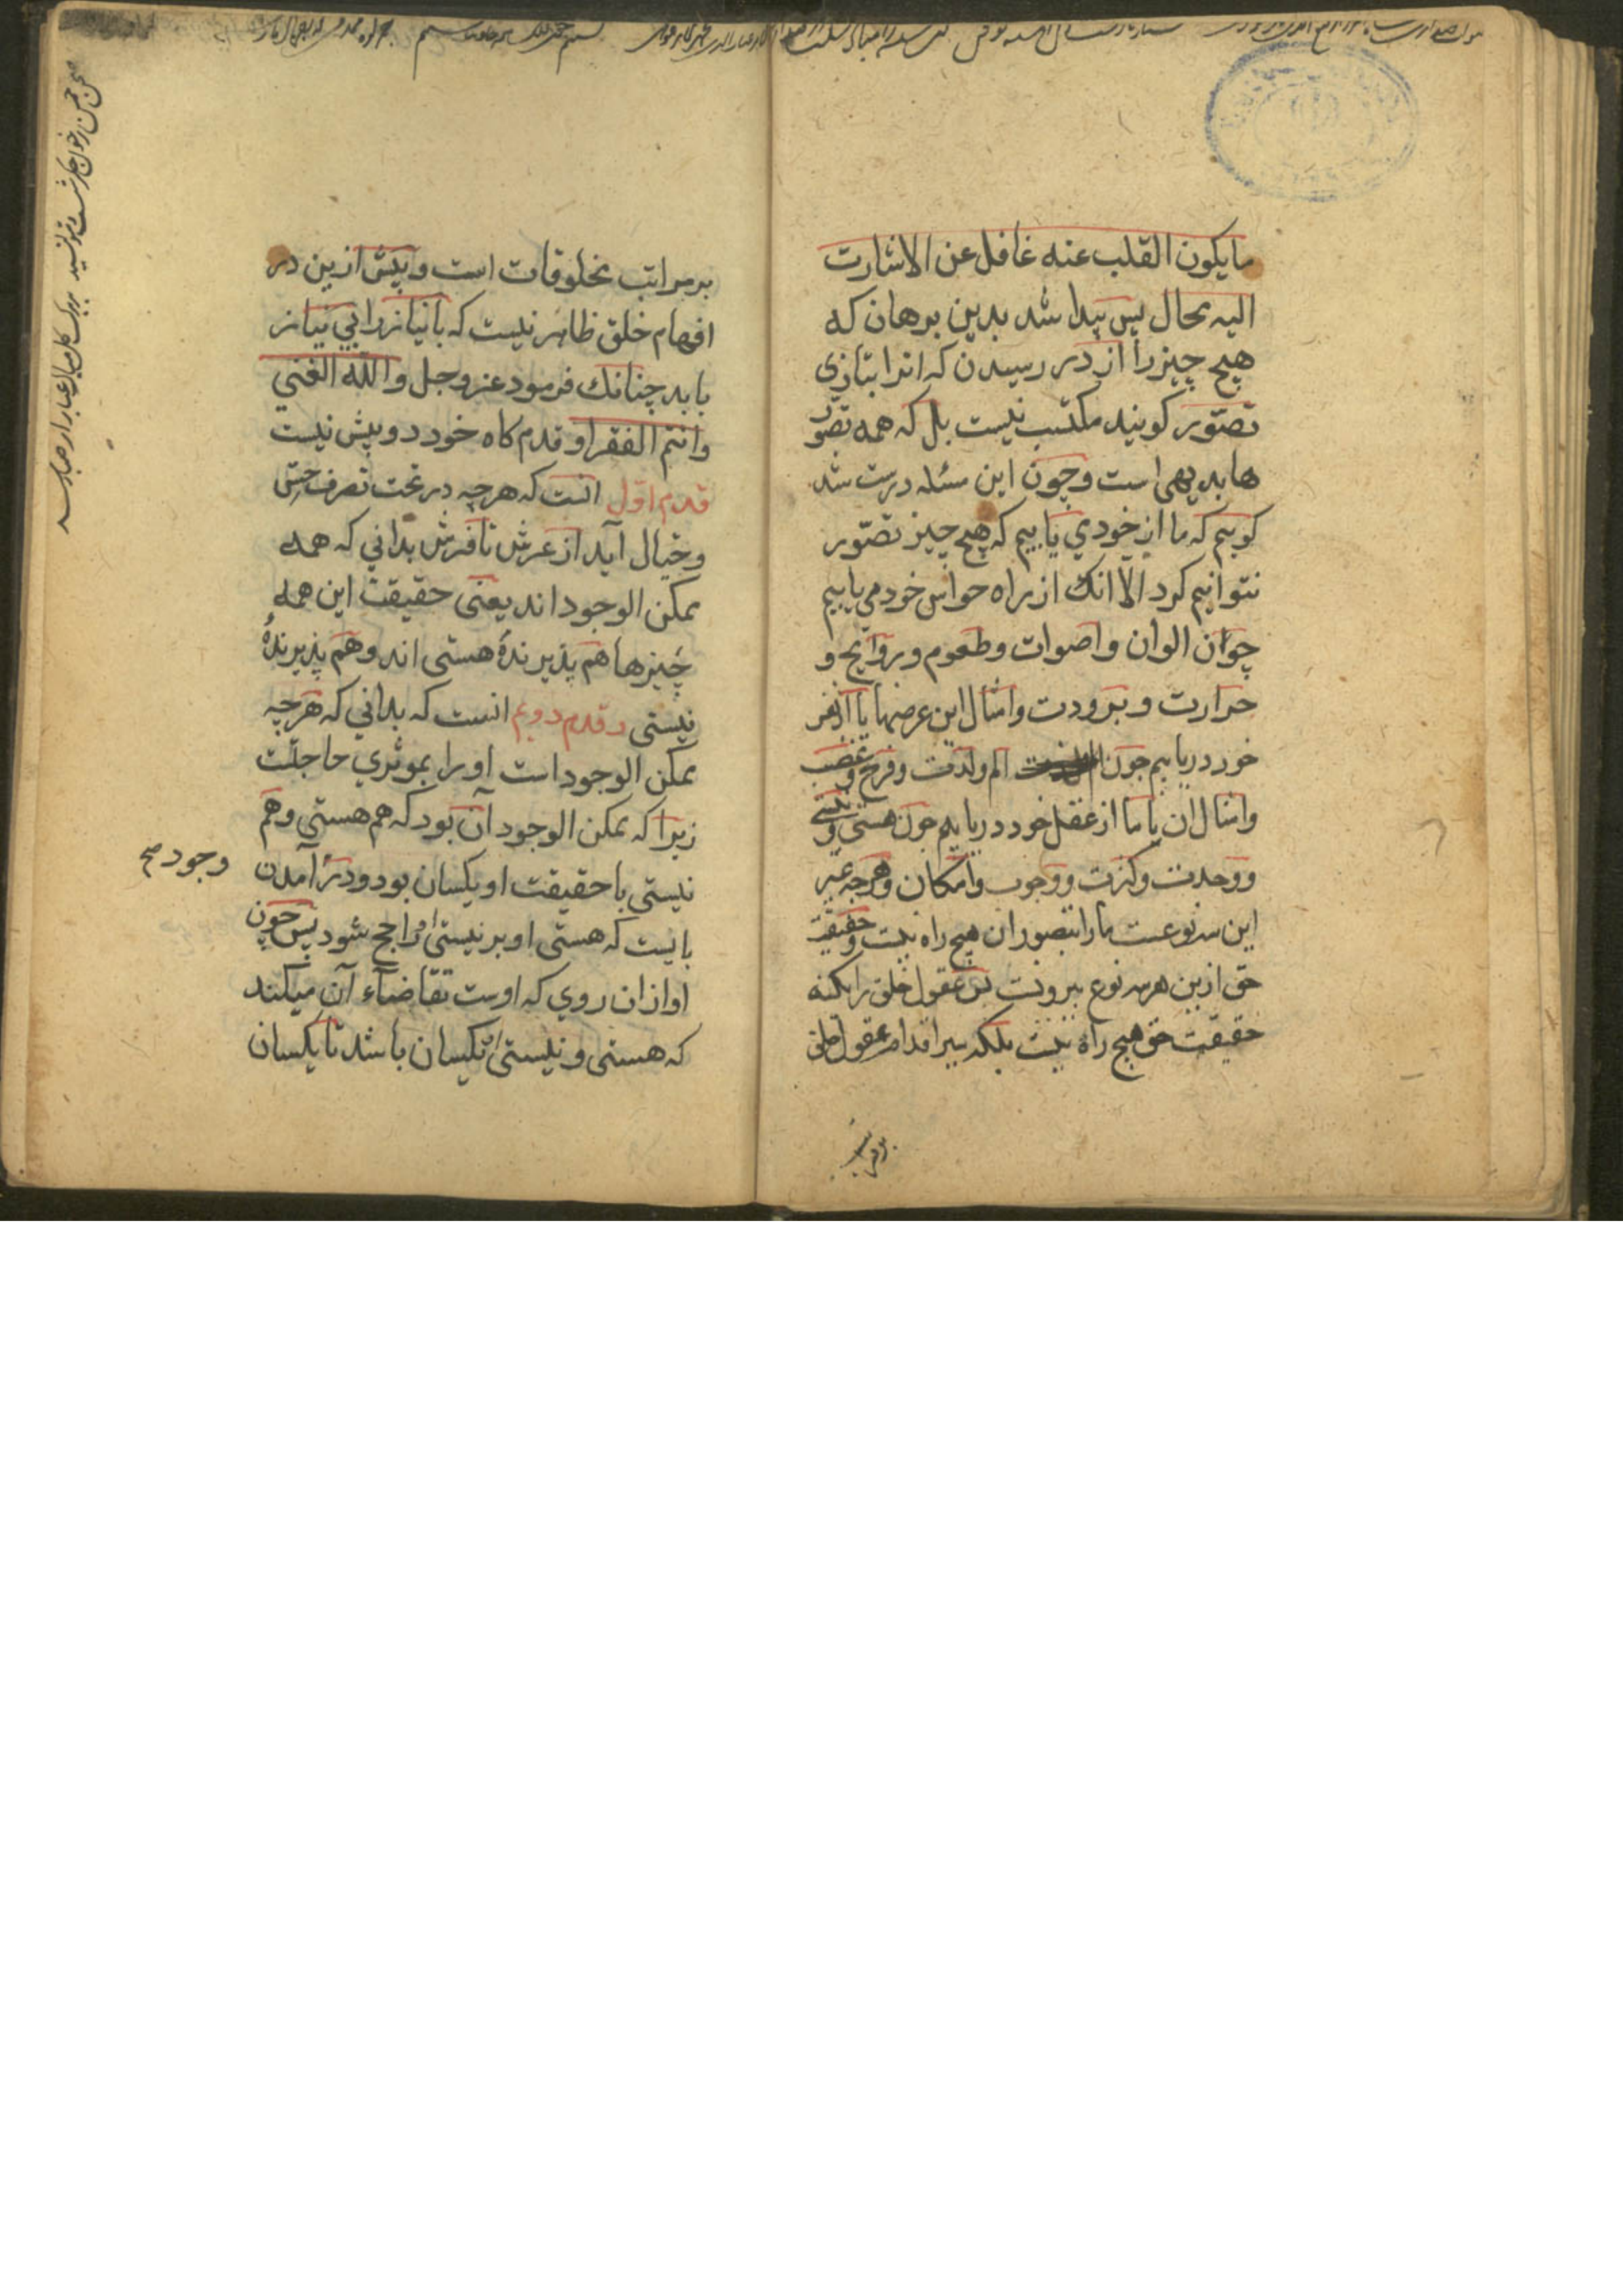 مایکون القلب عنه غافل عن الاشارت
الیه محال پس پیدا شد بدین برهان که
هیچ چیز را از در رسیدن که انرا بتازی
تصوّر کویند مکتسب نیست بل که همه تصوّر
ها بدیهی است و چون این مسئله درست شد
کوییم که ما از خودی یابیم که هیچ چیز تصوّر
نتوانیم کرد الّا انک از راه حواس خود می یابیم
چوان الوان و اصوات و طعوم و روایح و
حرارت و برودت و امثال این عرضها یا از نفس
خود دریابیم چون الم ولذت و فرح و غضب
و امثال ان یا ما از عقل خود دریابیم چون هستی و نیستی
و وحدت و کثرت و وجوب و امکان و هرچه غیر
این سه نوعست ما را بتصور ان هیچ راه نیست و حقیقت
حق ازین هر سه نوع بیرونست پس عقول خلق را بکنه
حقیقت حق هیچ راه نیست بلکه سیر اقدام عقول خلق
بر مراتب
بر مراتب مخلوقات است و پیش ازین در
افهام خلق ظاهر نیست که با نیاز را بی نیاز
یابد چنانک فرمود عز وجل والله الغنی
وانتم الفقرا و قدم کاه خود دو پیش نیست
قدم اول انست که هرچه در تحت تصرف حس
و خیال آید از عرش تا فرش بدانی که همه
ممکن الوجود اند یعنی حقیقت این همه
چیزها هم پذیرندهٔ هستی اند و هم پذیرندهٔ
نیستی و قدم دویم انست که بدانی که هرچه
ممکن الوجود است او را بموثری حاجتست
زیرا که ممکن الوجود آن بود که هم هستی و هم
نیستی با حقیقت او یکسان بود و در آمدن
وجود صح
بایست که هستی او بر نیستی او راجح شود پس چون
او ازان روی که اوست تقاضاء آن میکند
که هستی و نیستی او یکسان باشد تا یکسان